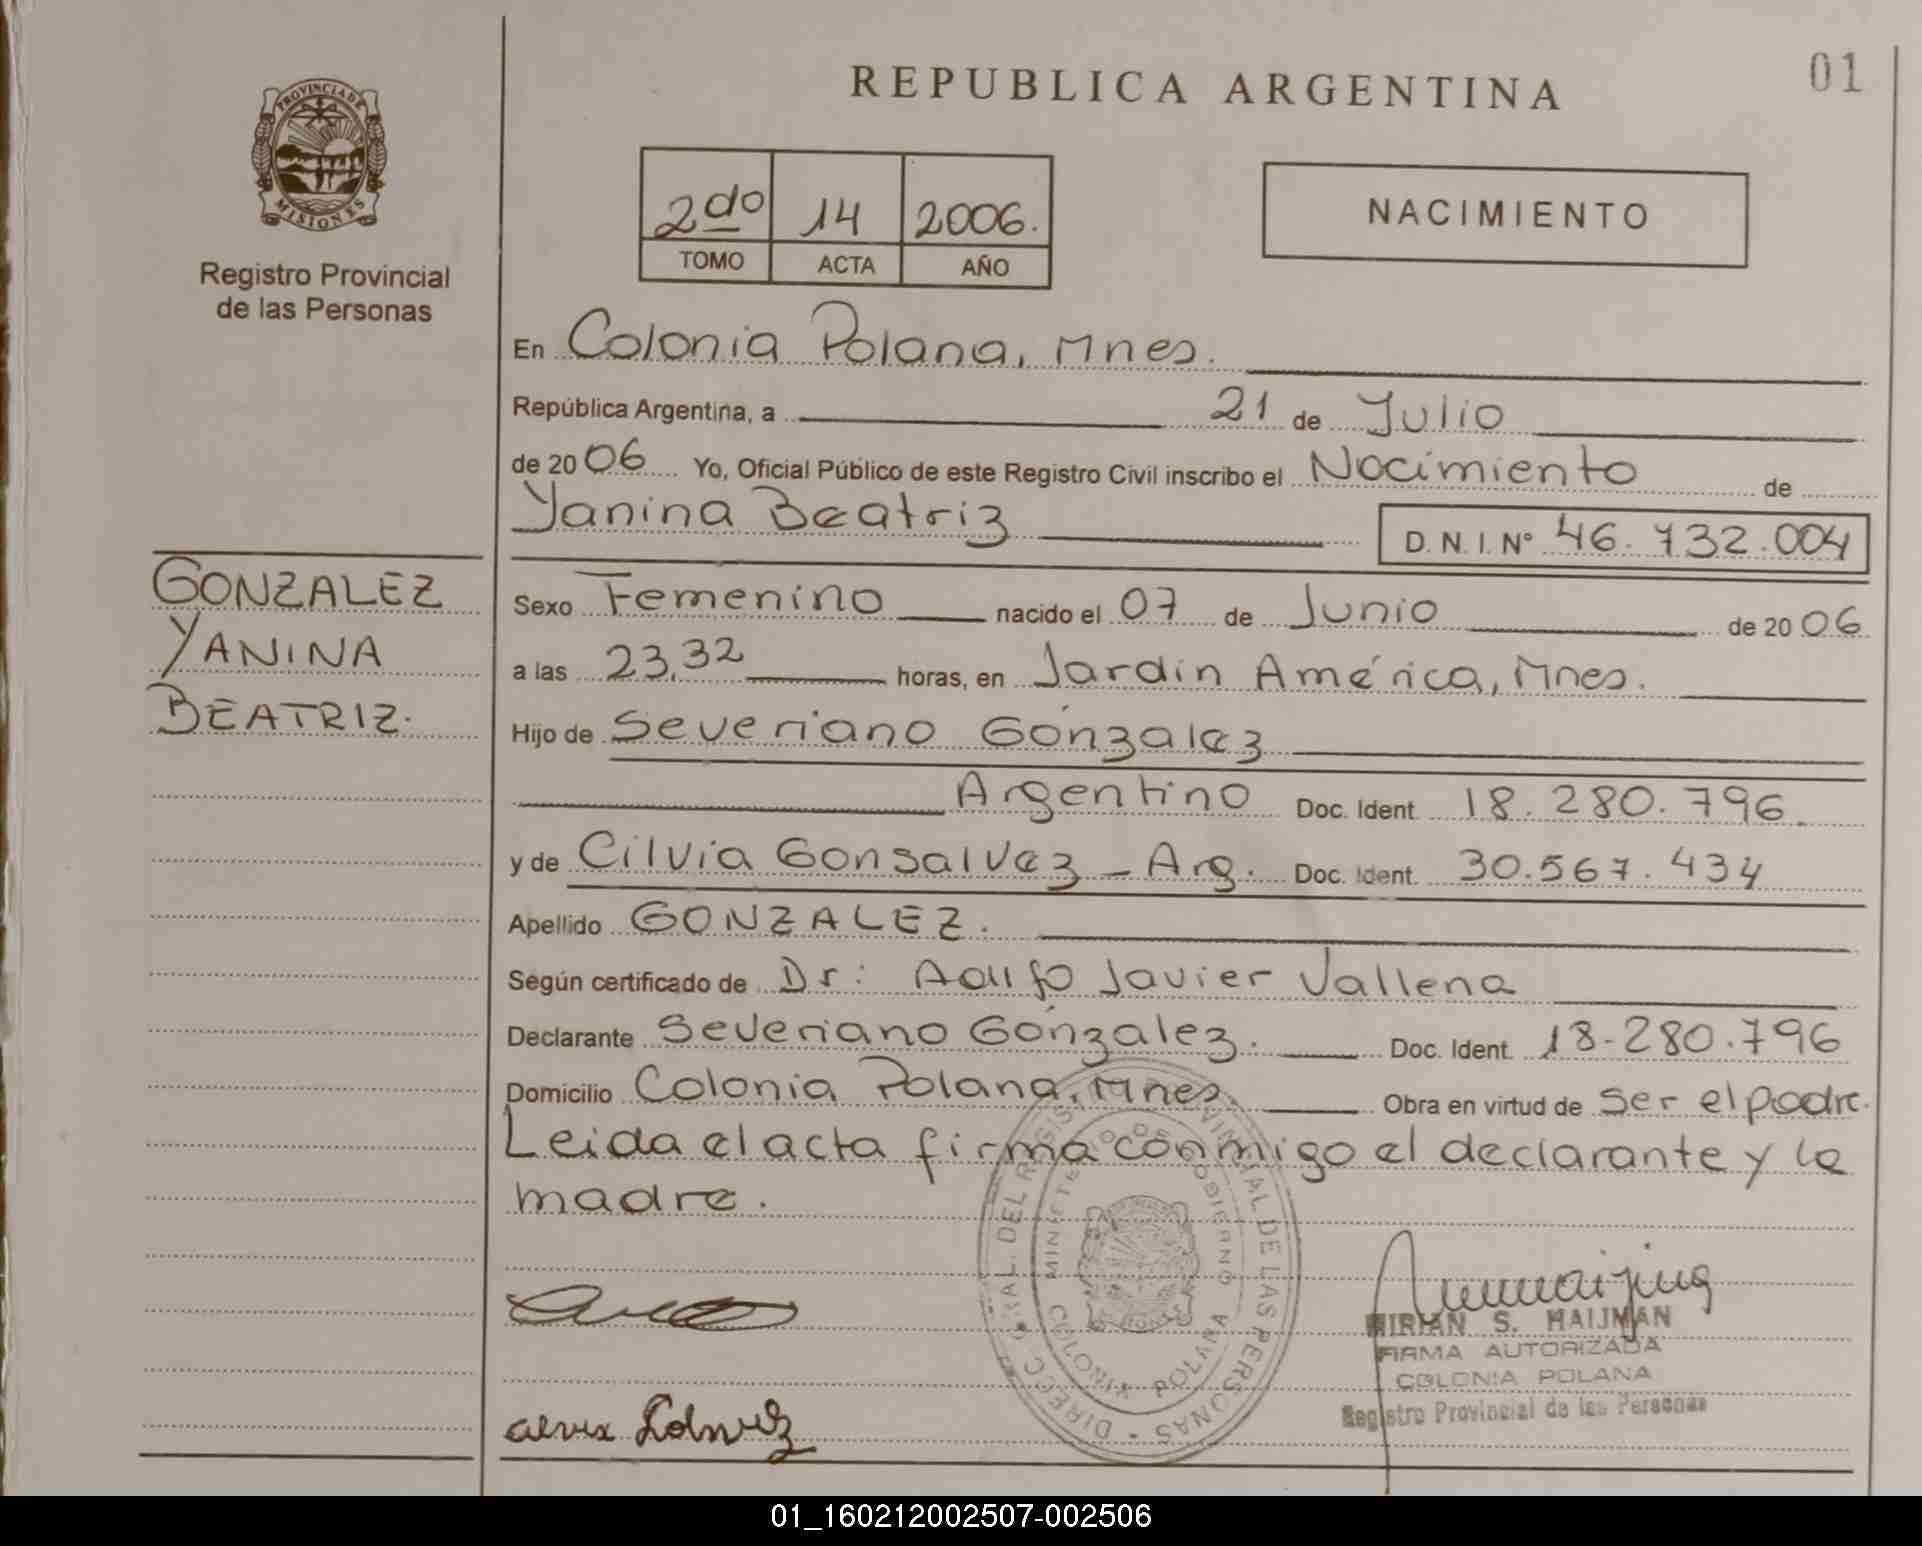 01
REPUBLICA ARGENTINA
PROVINCIA DE
MISIONES
Registro Provincial
de las Personas
2do 14 2006.
TOMO ACTA AÑO
NACIMIENTO
En Colonia Polana, Mnes.
República Argentina, a 21 de Julio
de 2006 Yo, Oficial Público de este Registro Civil inscribo el Nacimiento de
Yanina Beatriz D.N.I.N° 46.732.004
GONZALEZ
YANINA
BEATRIZ.
Sexo Femenino nacido el 07 de Junio de 2006
a las 23,32 horas, en Jardín América, Mnes.
Hijo de Severiano González
Argentino Doc. Ident. 18.280.796.
y de Cilvia Gonsalvez - Arg. Doc. Ident. 30.567.434
Apellido GONZALEZ.
Según certificado de Dr: Javier Vallena
Declarante Severiano González. Doc. Ident. 18-280.796
Domicilio Colonia Polana, Mnes. Obra en virtud de ser el padre.
Leida el acta firma conmigo el declarante y la
madre.
DIRECC. GRAL. DEL REGISTRO PROVINCIAL DE LAS PERSONAS
COLONIA POLANA
MIRIAN S. HAIJMAN
FIRMA AUTORIZADA
COLONIA POLANA
Registro Provincial de las Personas
01_160212002507-002506